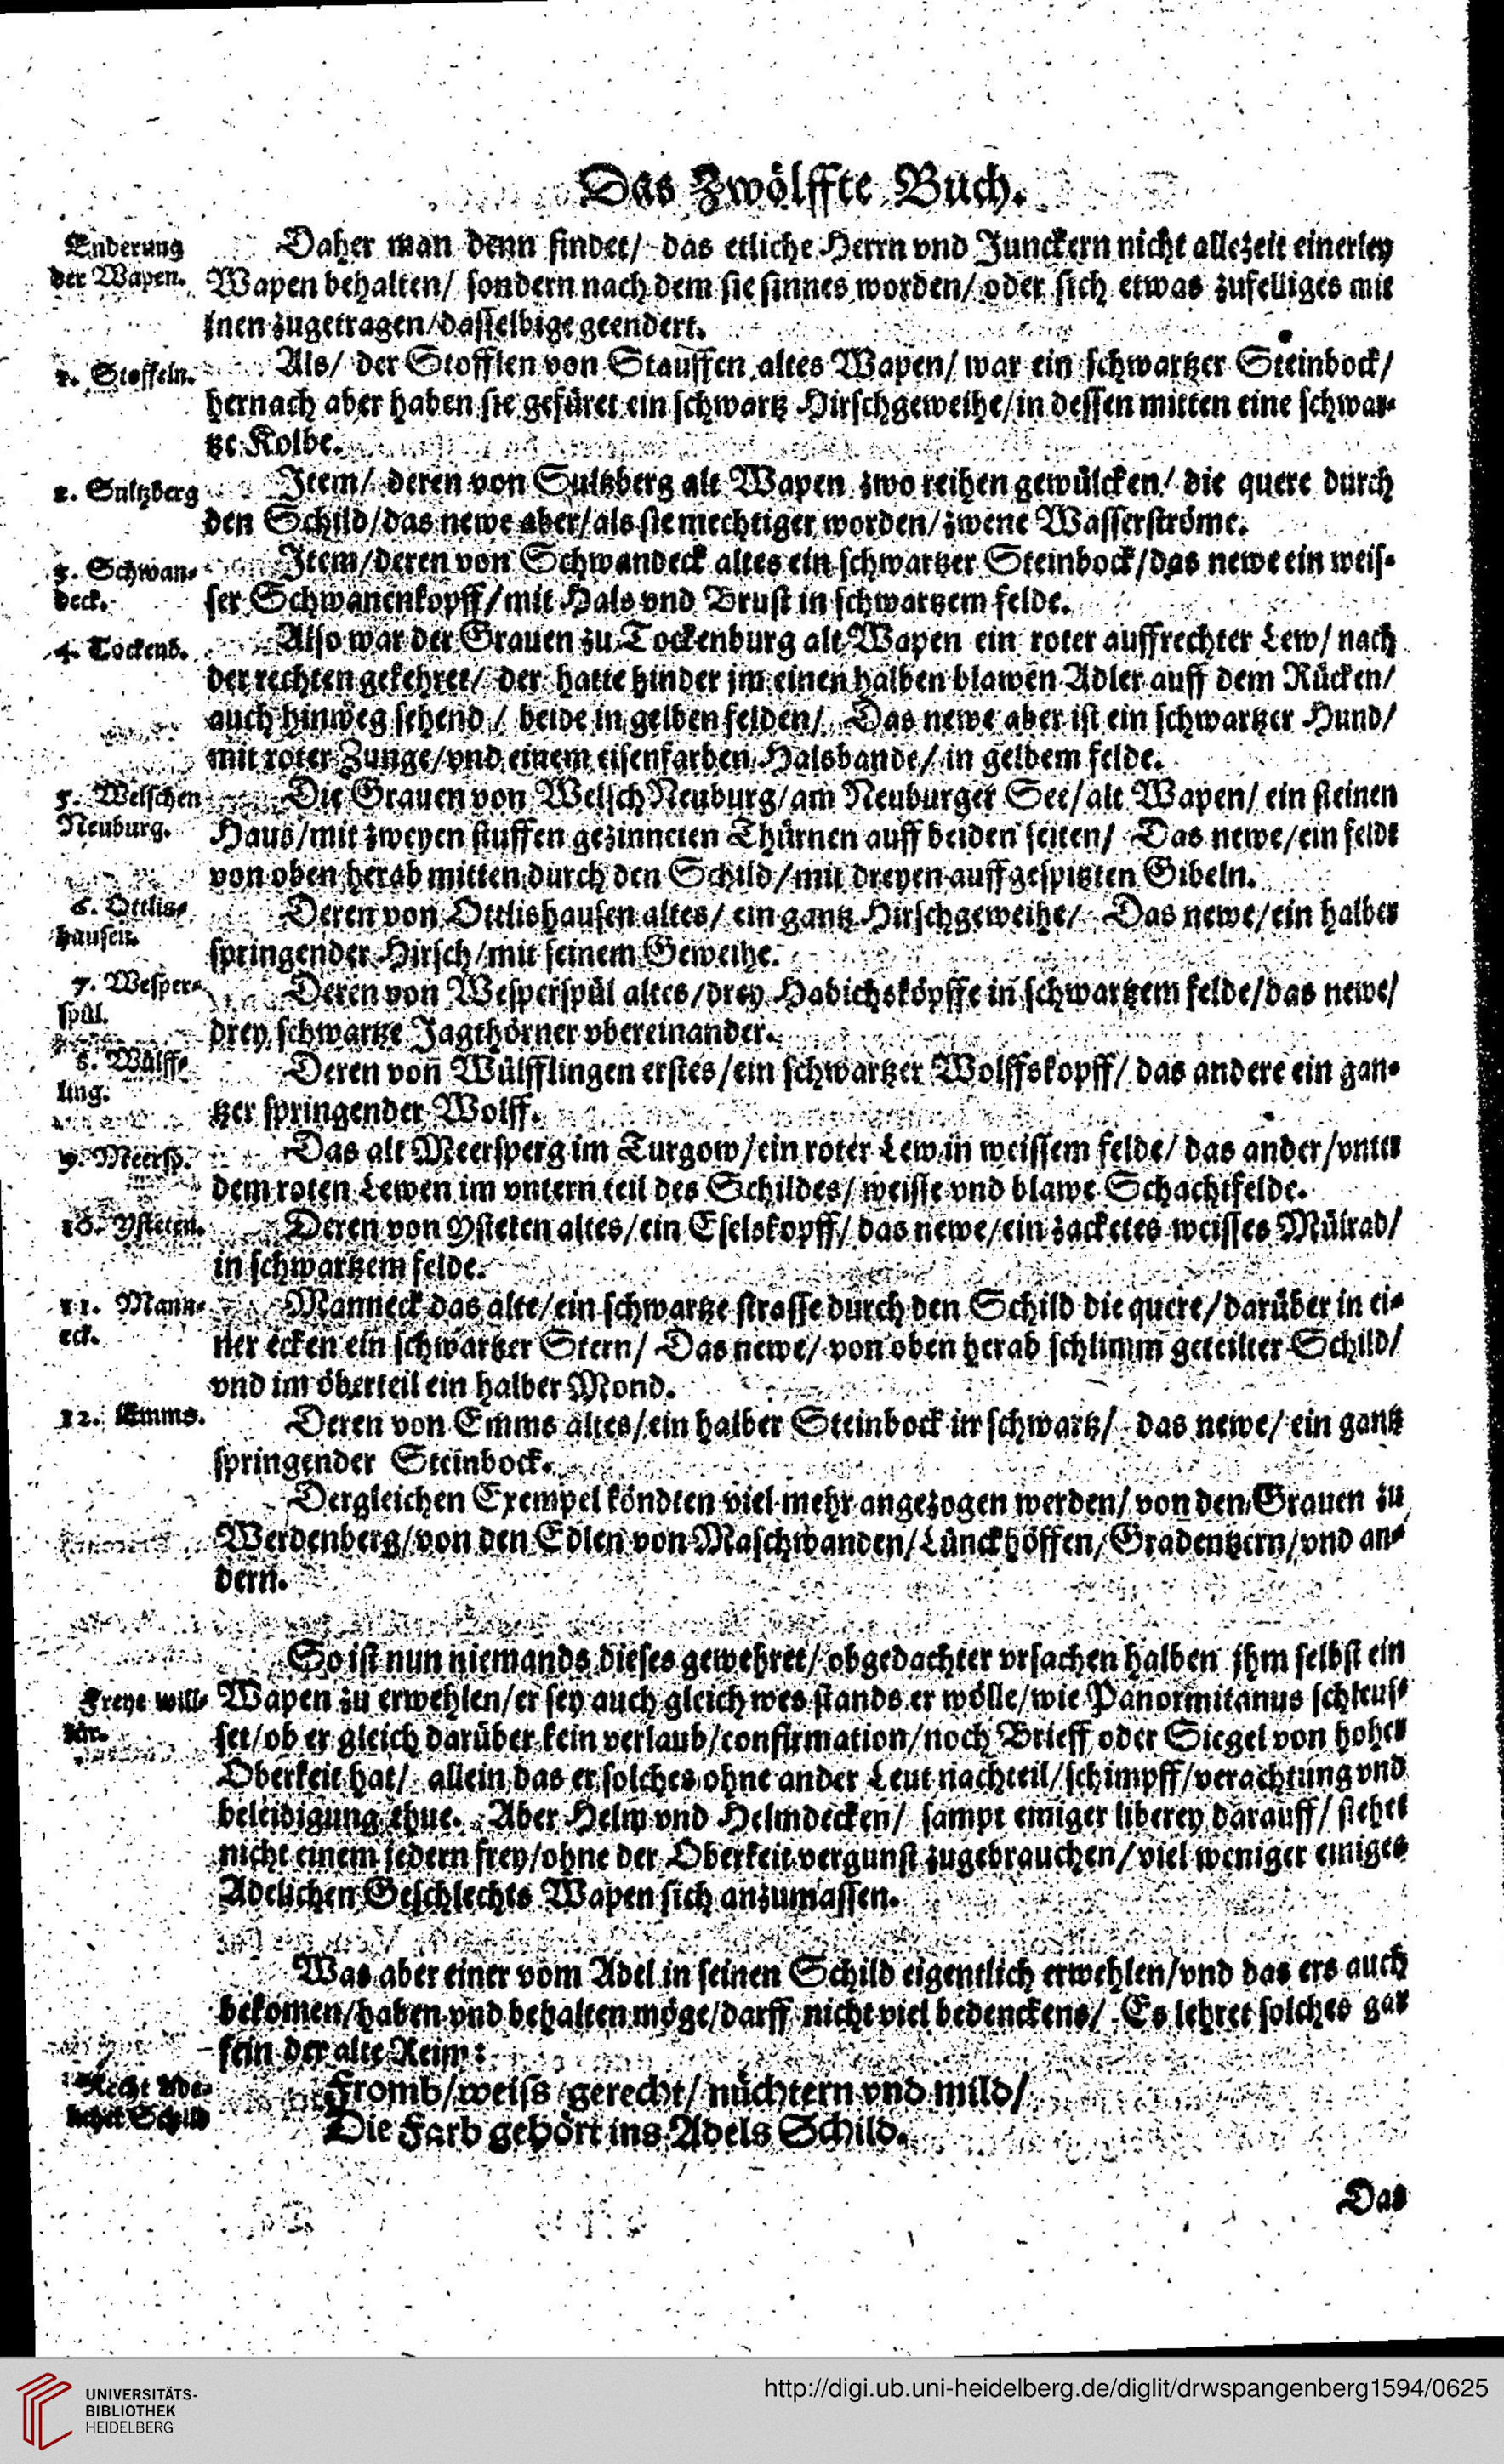 Das Zwölffte Buch.
Enderung
der Wapen.
Daher man denn findet/ das etliche Herrn vnd Junckern nicht allezeit einerley
Wapen behalten/ sondern nach dem sie sinnes worden/ oder sich etwas zufelliges mit
jnen zugetragen/dasselbige geendert.
1. Stoffeln.
Als/ der Stofflen von Stauffen altes Wapen/ war ein schwartzer Steinbock/
hernach aber haben sie gefüret ein schwartz Hirschgeweihe/in dessen mitten eine schwar-
tze Kolbe.
2. Sultzberg
Item/ deren von Sultzberg alt Wapen zwo reihen gewülcken/ die quere durch
den Schild/das newe aber/als sie mechtiger worden/zwene Wasserströme.
3. Schwan-
deck.
Item/deren von Schwandeck altes ein schwartzer Steinbock/das newe ein weis-
ser Schwanenkopff/mit Hals vnd Brust in schwartzem felde.
4. Tockenb.
Also war der Grauen zu Tockenburg alt Wapen ein roter auffrechter Lew/ nach
der rechten gekehret/ der hatte hinder jm einen halben blawen Adler auff dem Rücken/
auch hinweg sehend/ beide in gelben felden/ Das newe aber ist ein schwartzer Hund/
mit roter Zunge/vnd einem eisenfarben Halsbande/ in gelbem felde.
5. Welschen
Neuburg.
Die Grauen von Welsch Neuburg/am Neuburger See/alt Wapen/ ein steinen
Haus/mit zweyen stuffen gezinneten Thürnen auff beiden seiten/ Das newe/ein feldt
von oben herab mitten durch den Schild/mit dreyen auffgespitzten Gibeln.
6. Ottlis-
hausen.
Deren von Ottlishausen altes/ ein gantz Hirschgeweihe/ Das newe/ein halber
springender Hirsch/mit seinem Geweihe.
7. Wesper-
spül.
Deren von Wesperspül altes/drey Habichsköpffe in schwartzem felde/das newe/
drey schwartze Jagthörner vbereinander.
8. Wülff-
ling.
Deren von Wülfflingen erstes/ein schwartzer Wolffskopff/ das andere ein gan-
tzer springender Wolff.
9. Meersp.
Das alt Meersperg im Turgow/ein roter Lew in weissem felde/ das ander/vnter
dem roten Lewen im vntern teil des Schildes/ weisse vnd blawe Schachtfelde.
10. Ysteten.
Deren von Ysteten altes/ein Eselskopff/ das newe/ein zacketes weisses Mülrad/
in schwartzem felde.
11. Mann-
eck.
Manneck das alte/ein schwartze strasse durch den Schild die quere/darüber in ei-
ner ecken ein schwartzer Stern/ Das newe/ von oben herab schlimm geteilter Schild/
vnd im öberteil ein halber Mond.
12. Emms.
Deren von Emms altes/ein halber Steinbock in schwartz/ das newe/ ein gantz
springender Steinbock.
Dergleichen Exempel köndten viel mehr angezogen werden/ von den Grauen zu
Werdenberg/von den Edlen von Maschwanden/Lünckhöffen/Gradentzern/vnd an-
dern.
So ist nun niemands dieses gewehret/ obgedachter vrsachen halben jhm selbst ein
Freye will-
kür.
Wapen zu erwehlen/er sey auch gleich wes stands er wölle/wie Panormitanus schleus-
set/ob er gleich darüber kein verlaub/confirmation/noch Brieff oder Siegel von hoher
Oberkeit hat/ allein das er solches ohne ander Leut nachteil/schimpff/verachtung vnd
beleidigung thue. Aber Helm vnd Helmdecken/ sampt einiger liberey darauff/ stehet
nicht einem jedern frey/ohne der Oberkeit vergunst zugebrauchen/viel weniger einiges
Adelichen Geschlechts Wapen sich anzumassen.
Was aber einer vom Adel in seinen Schild eigentlich erwehlen/vnd das ers auch
bekomen/haben vnd behalten möge/darff nicht viel bedenckens/ Es lehret solches gar
fein der alte Reim:
Recht Ade-
licher Schild
Fromb/weiss/gerecht/nüchtern vnd mild/
Die Farb gehört ins Adels Schild.
Das
UNIVERSITÄTS-
BIBLIOTHEK
HEIDELBERG
http://digi.ub.uni-heidelberg.de/diglit/drwspangenberg1594/0625